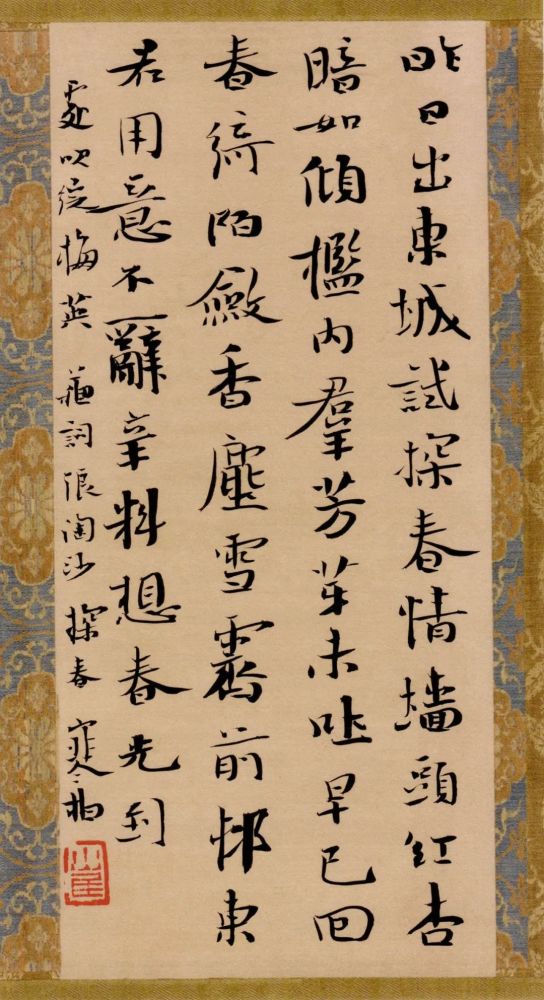 昨日出東城試探春情墻頭紅杏
暗如傾檻內羣芳芽未吐早已回
春綺陌斂香塵雪霽前邨東
君用意不辭辛料想春先到
處吹綻梅英 蘇詞浪淘沙 探春